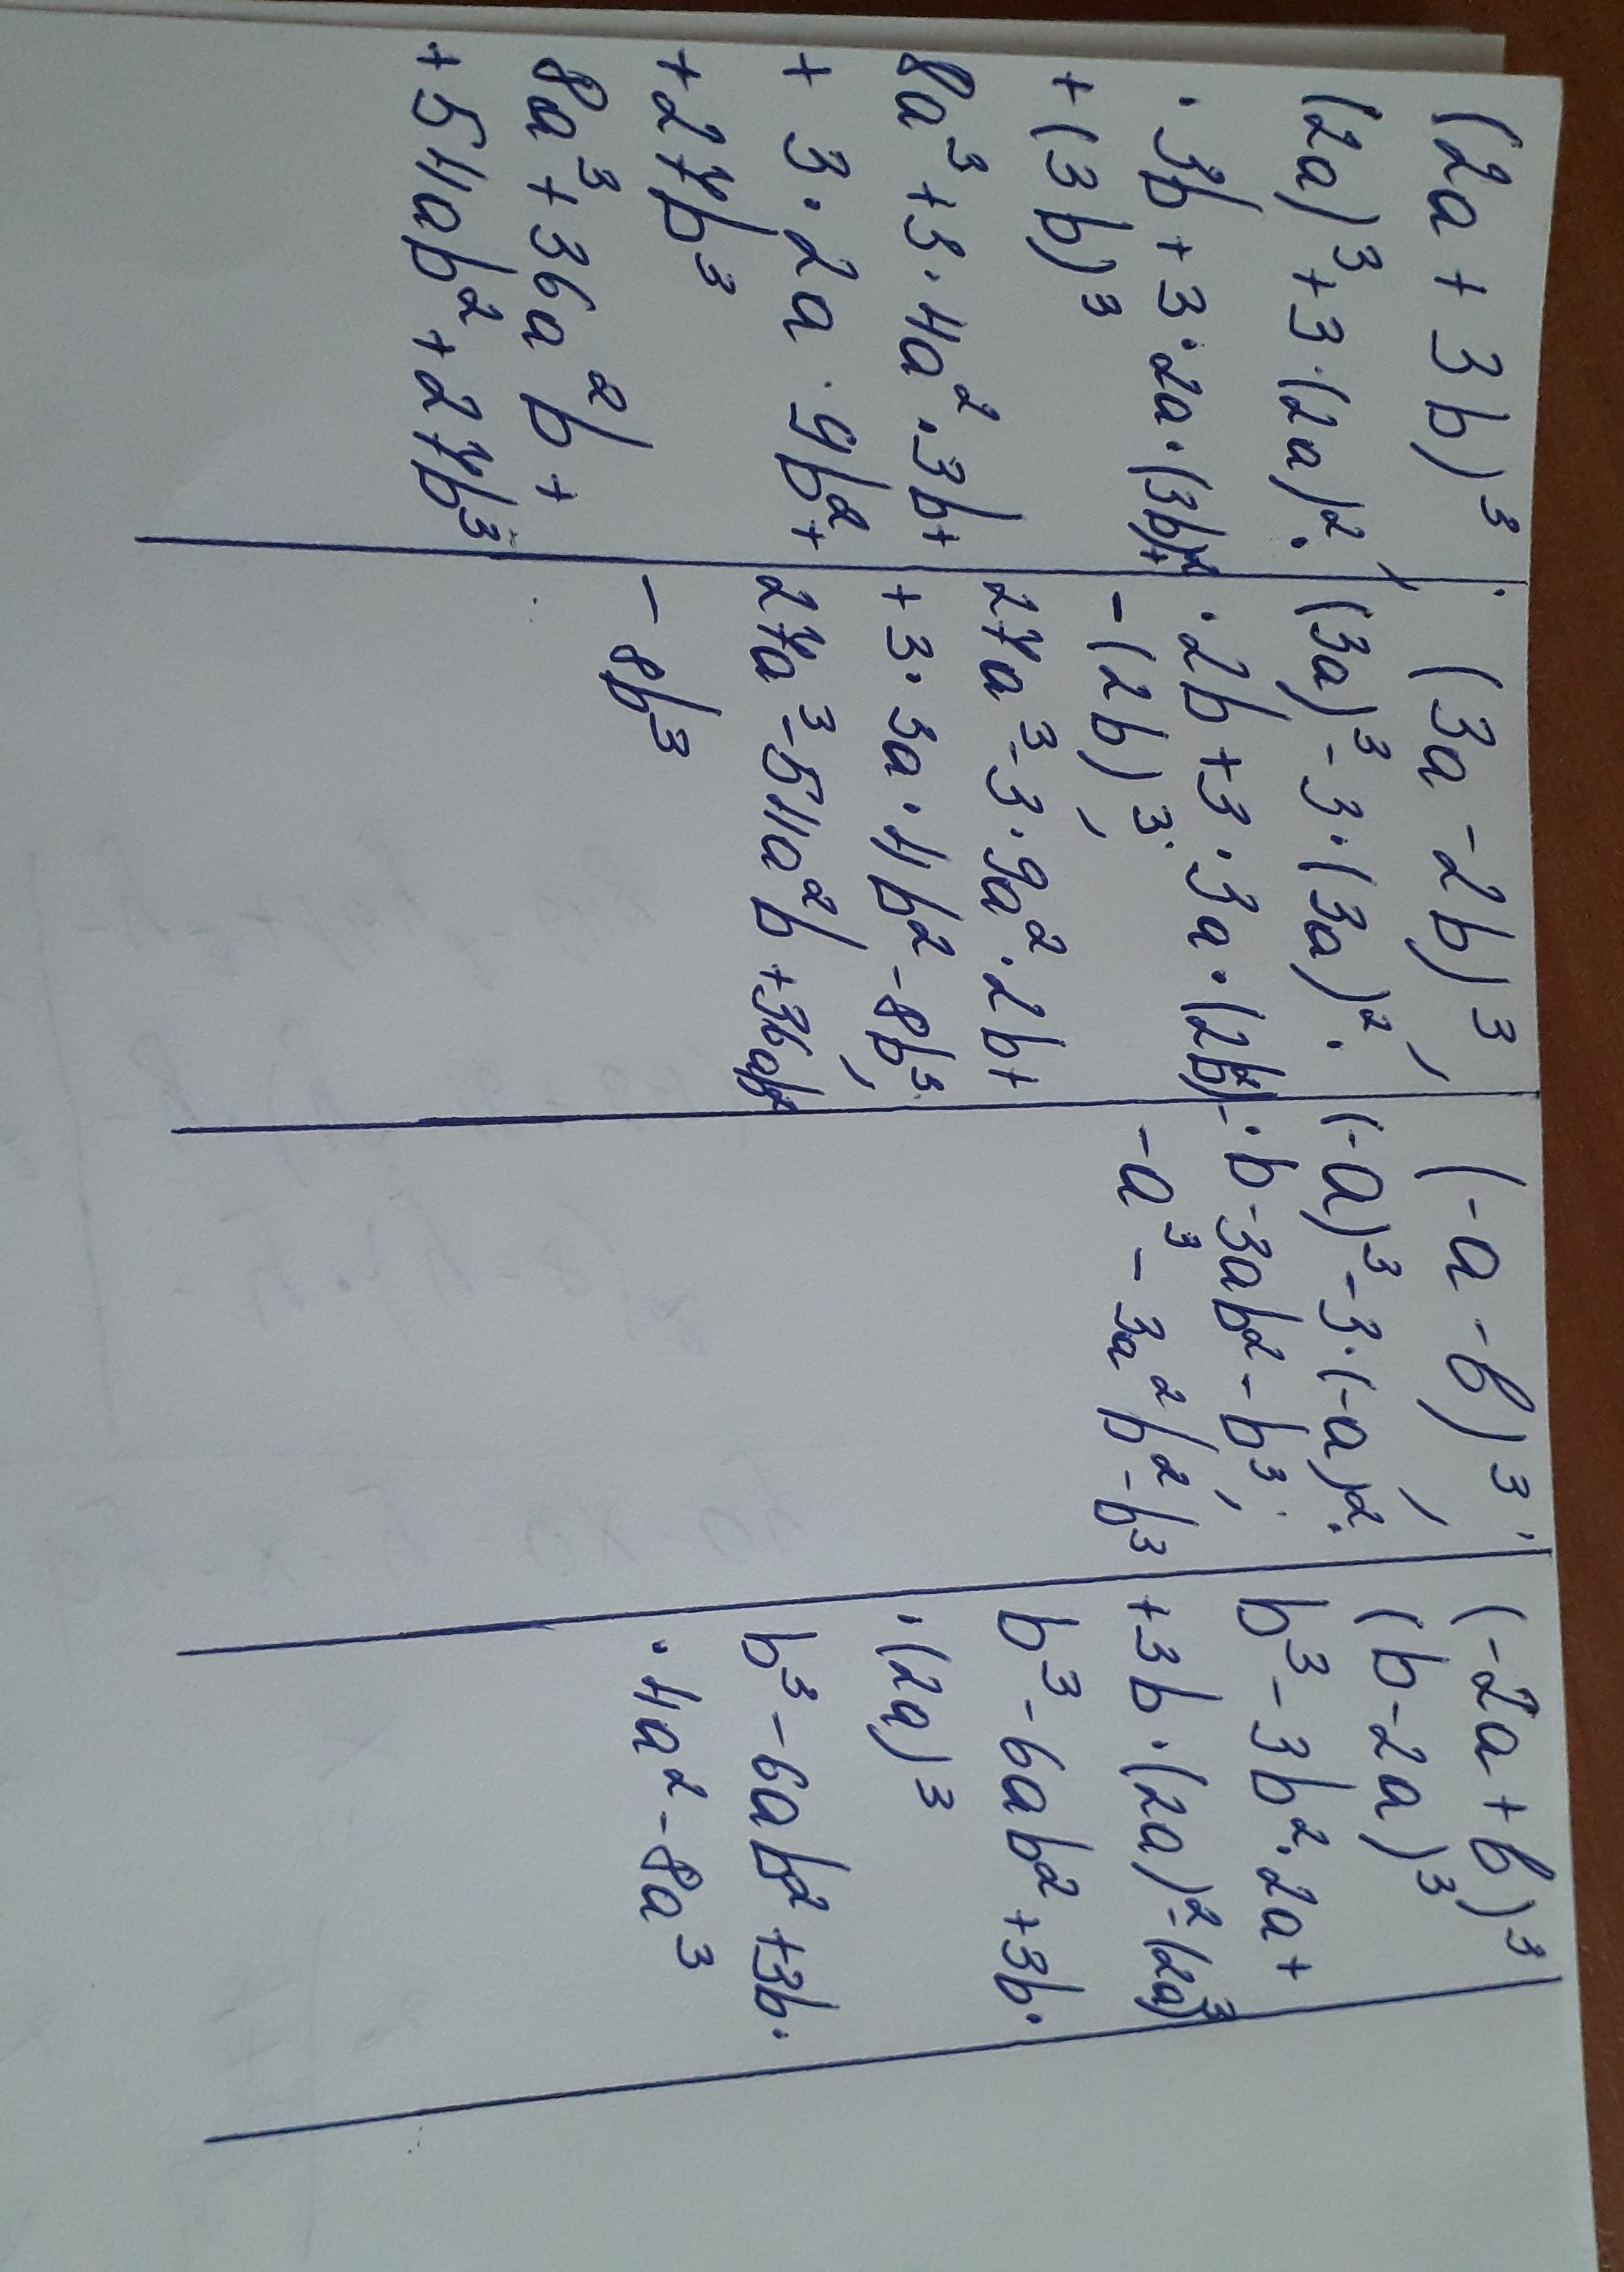 (2a + 3b)³;
(2a)³ + 3·(2a)²·
·3b + 3·2a·(3b)²+
+ (3b)³
8a³ + 3·4a²·3b+
+ 3·2a·9b²+
+ 27b³
8a³ + 36a²b +
+ 54ab² + 27b³
(3a - 2b)³,
(3a)³ - 3·(3a)²·
·2b + 3·3a·(2b)²-
- (2b)³;
27a³ - 3·9a²·2b+
+ 3·3a·4b² - 8b³;
27a³ - 54a²b + 36ab²
- 8b³
(-a - b)³;
(-a)³ - 3·(-a)²·
·b - 3ab² - b³;
-a³ - 3a²b² - b³
(-2a + b)³
(b - 2a)³
b³ - 3b²·2a+
+3b·(2a)² - (2a)³
b³ - 6ab² + 3b·
·(2a)³
b³ - 6ab² + 3b·
·4a² - 8a³